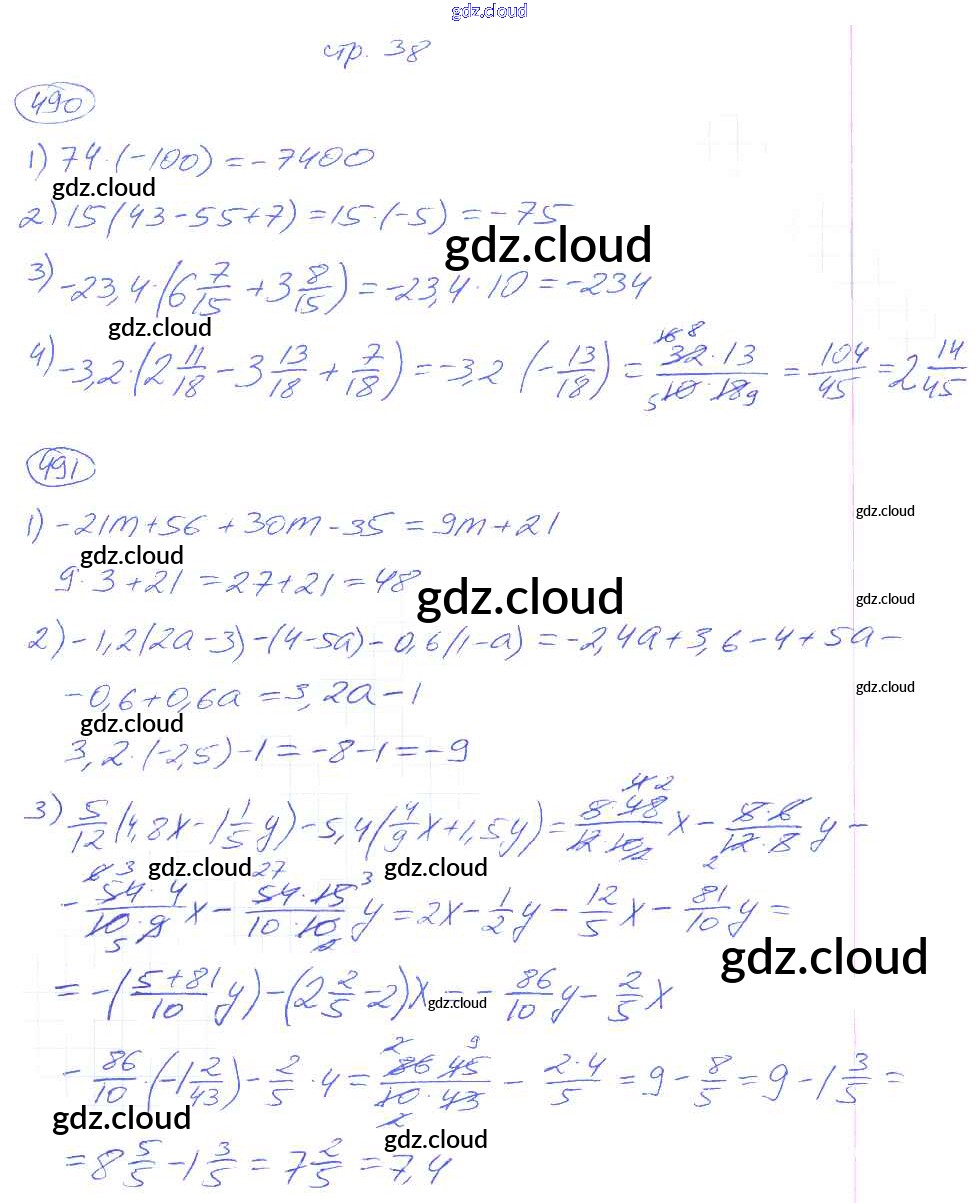 gdz.cloud
стр. 38
490
1) 74·(-100) = -7400
gdz.cloud
2) 15(43-55+7) = 15·(-5) = -75
gdz.cloud
3) -23,4·(6 7/15 + 3 8/15) = -23,4·10 = -234
gdz.cloud
4) -3,2·(2 11/18 - 3 13/18 + 7/18) = -3,2 (-13/18) = 32·13/10·18 = 104/45 = 2 14/45
491
1) -21m+56+30m-35 = 9m+21
gdz.cloud
gdz.cloud
9·3+21 = 27+21 = 48
gdz.cloud
gdz.cloud
2) -1,2(2a-3)-(4-5a)-0,6(1-a) = -2,4a+3,6-4+5a-
-0,6+0,6a = 3,2a-1
gdz.cloud
gdz.cloud
3,2·(-2,5)-1 = -8-1 = -9
3) 5/12(4,8x-1 1/5y)-5,4(4/9x+1,5y) = 8·48/12·10 x - 8·6/12·8 y -
gdz.cloud
gdz.cloud
- 54·4/10·9 x - 54·15/10·10 y = 2x - 1/2y - 12/5x - 81/10y =
gdz.cloud
= -(5+81/10 y)-(2 2/5-2)x = - 86/10y - 2/5x
gdz.cloud
- 86/10·(-1 2/43) - 2/5·4 = 86·45/10·43 - 2·4/5 = 9 - 8/5 = 9 - 1 3/5 =
gdz.cloud
gdz.cloud
= 8 5/5 - 1 3/5 = 7 2/5 = 7,4